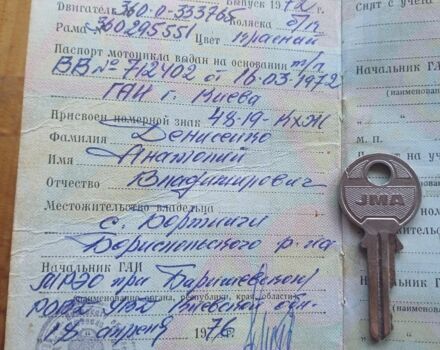 Двигатель 360-0-333765 Выпуск 1972 г.
Рама № 360295551 Коляска б/п
Цвет красный
Паспорт мотоцикла выдан на основании т/п
ВВ № 712402 от 16.03.1972
ГАИ г. Киева
Присвоен номерной знак 48-19 КхЖ
Фамилия Денисенко
Имя Анатолий
Отчество Владимирович
Местожительство владельца
с. Бортничи
Бориспольского р-на
Начальник ГАИ
МРЭО при Барышевском
наименование органа, республики, края, области
РОВД УВД Киевской обл.
18 апреля 1976
Снят с учета
Начальник ГАИ
(наименование
М. П.
на уч
Начальник ГАИ
(наимен
JMA